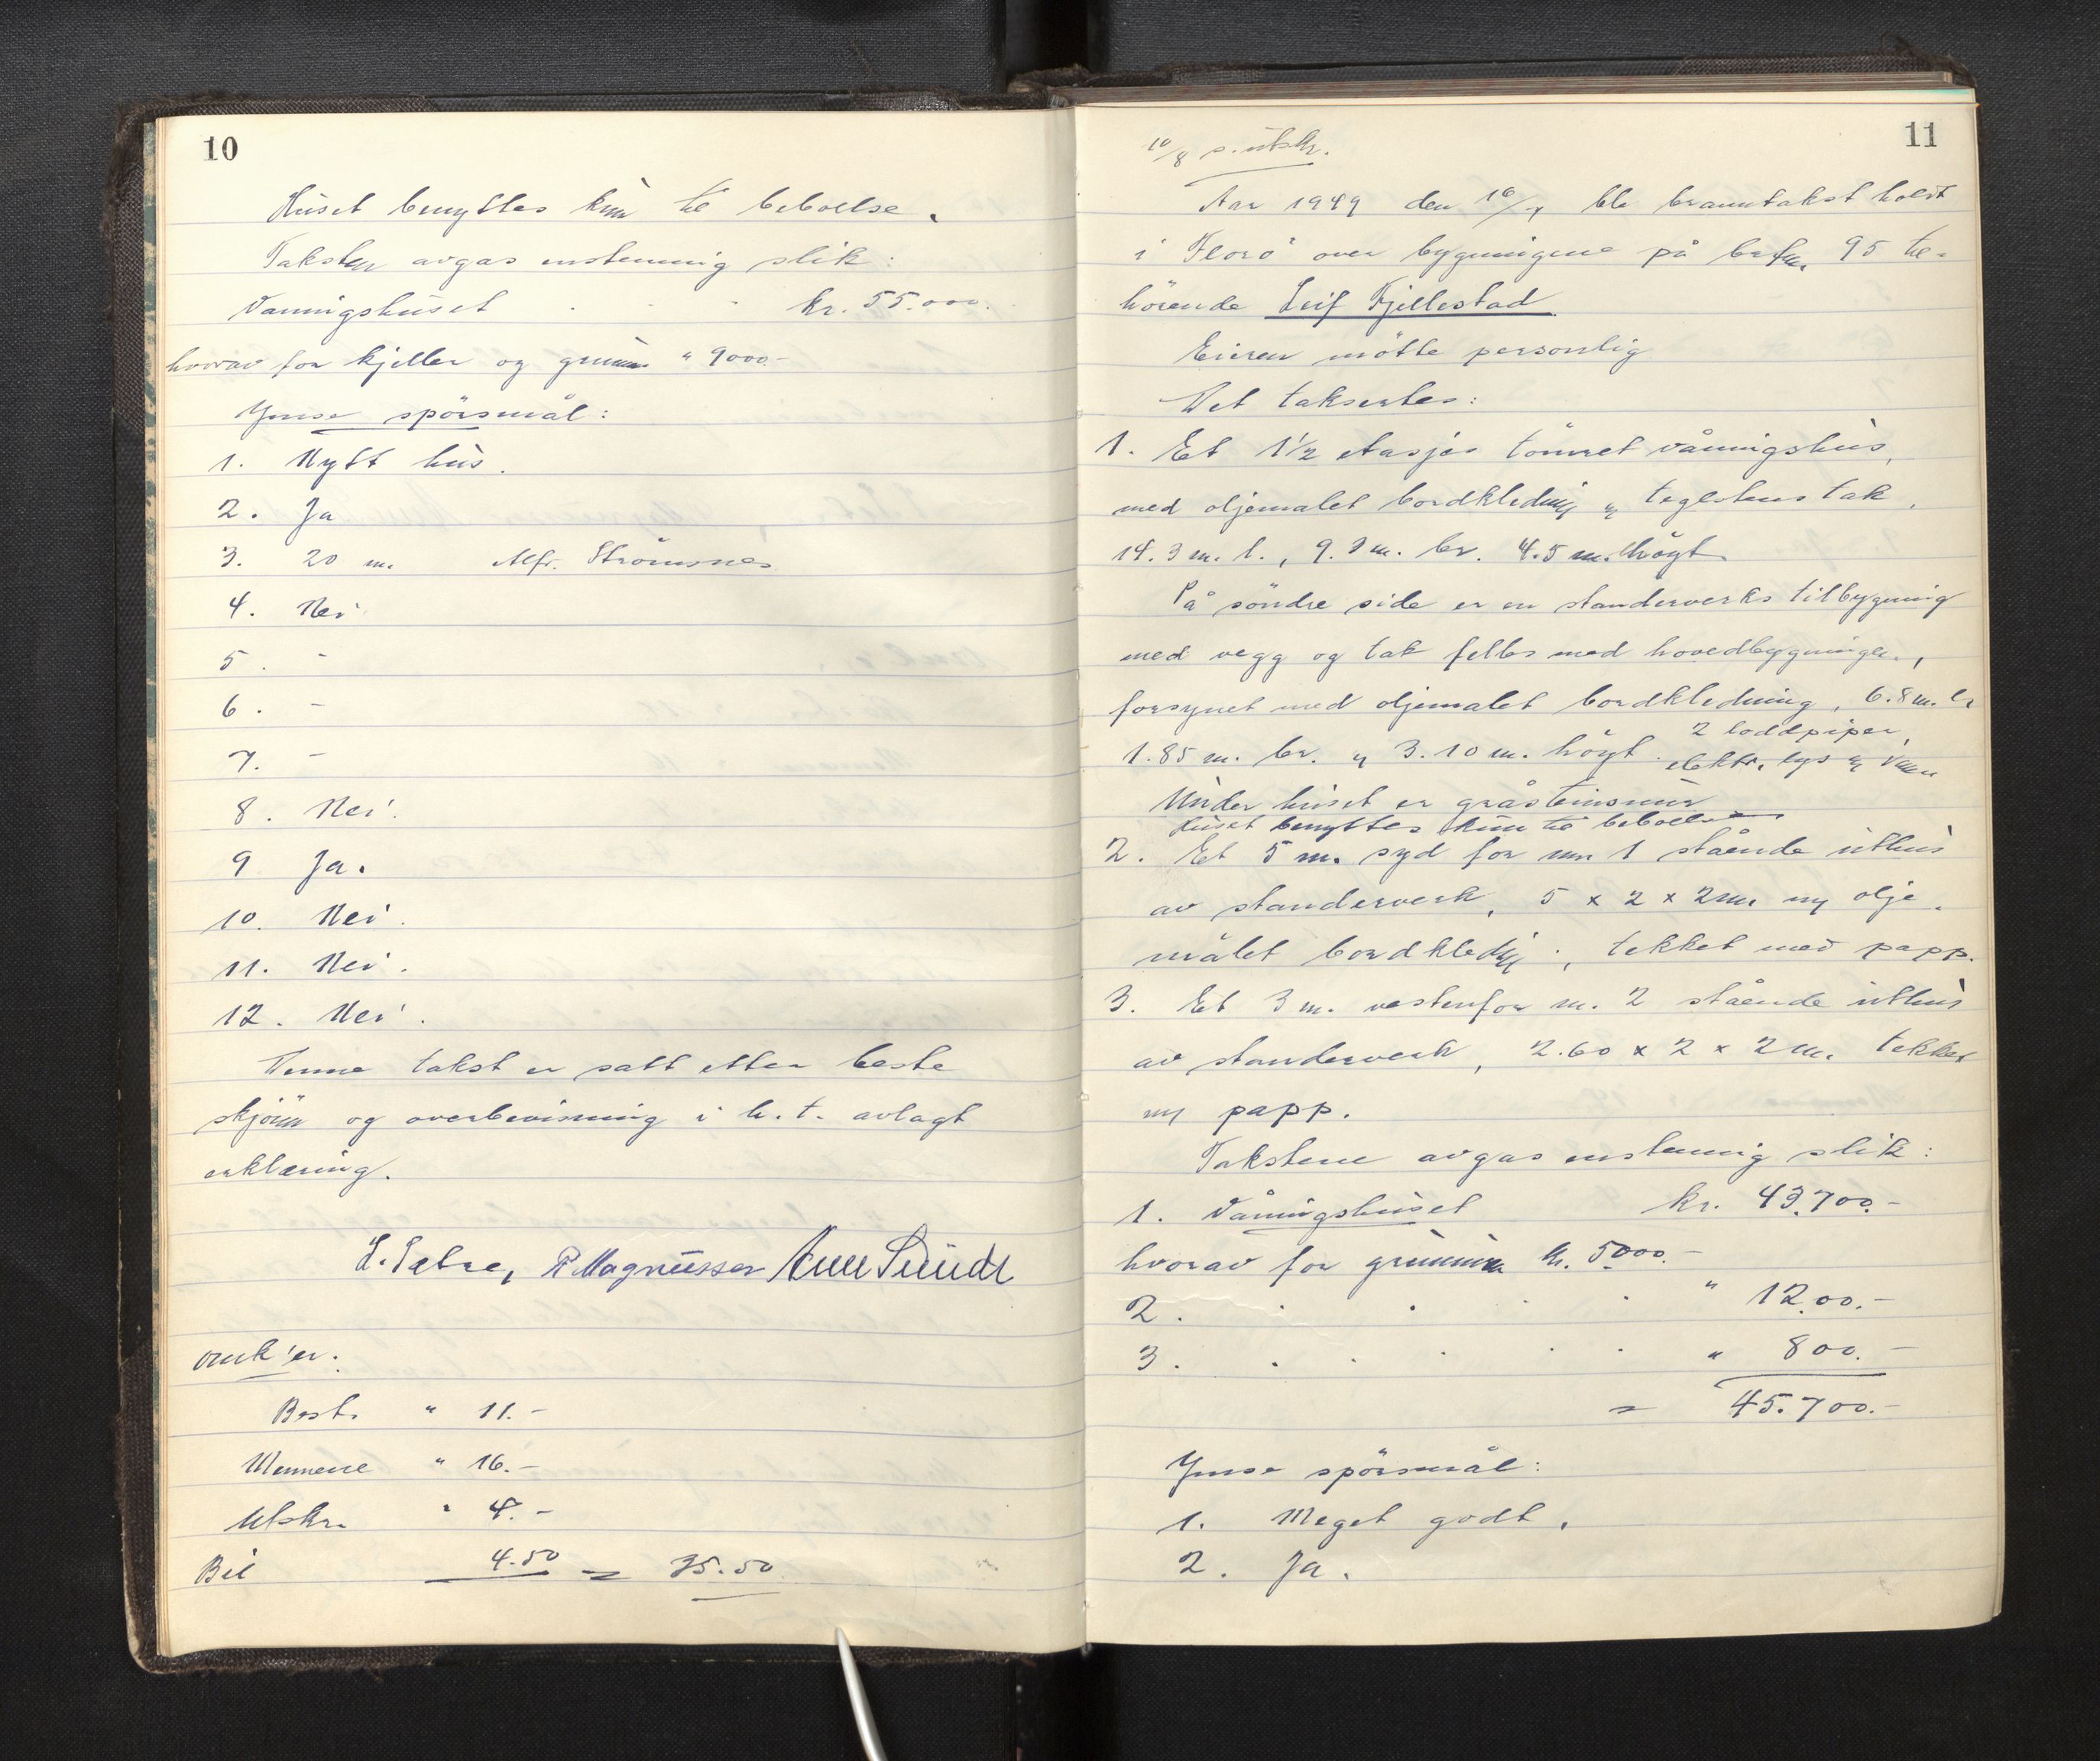 10
Huset benyttes kun til beboelse.
Taksten avgas enstemmig slik:
Vanningshuset kr. 55.000.
hvorav for kjeller og grunn " 9000.-
Ymse spörsmål:
1. Nytt hus.
2. Ja
3. 20 m. Alfr. Strömsnes
4. Nei
5. -
6. -
7. -
8. Nei.
9 Ja.
10. Nei.
11. Nei.
12. Nei.
Denne takst er satt etter beste
skjönn og overbevisning i h.t. avlagt
erklæring.
R Magnussen
Best. " 11.-
Mennene " 16.-
Utskr. " 4.-
Bil 4.50 = 35.50
11
10/8 s. utskr.
Aar 1949 den ble branntakst holdt
i Florö over bygningene på 95 til-
hörende Leif Fjellestad
Eieren mötte personlig
Det taksertes:
1. Et 1½ etasjes tömret våningshus,
med oljemalet bordkledning og teglstens tak,
14.3 m. l., 9.3 m. br. 4.5 m. höyt
På söndre side er en standerverks tilbygning
med vegg og tak felles med hovedbygningen,
forsynet med oljemalet bordkledning, 6.8 m. l.
1.85 m. br. og 3.10 m. höyt. 2 loddpiper,
elektr. lys og vann
Under huset er gråsteinsmur
Huset benyttes kun til beboelse
2. Et 5 m. syd for nr 1 stående uthus
av standerverk, 5 x 2 x 2 m. m/ olje-
målet bordkledn., tekket med papp.
3. Et 3 m. vestenfor nr. 2 stående uthus
av standerverk, 2.60 x 2 x 2 m. tekket
m/ papp.
Takstene avgas enstemmig slik:
1. Våningshuset kr. 43.700.-
hvorav for grunnmur kr. 5000.-
2. " 12.00.-
3. " 800.-
= 45.700.-
Ymse spörsmål:
1. Meget godt.
2. Ja.